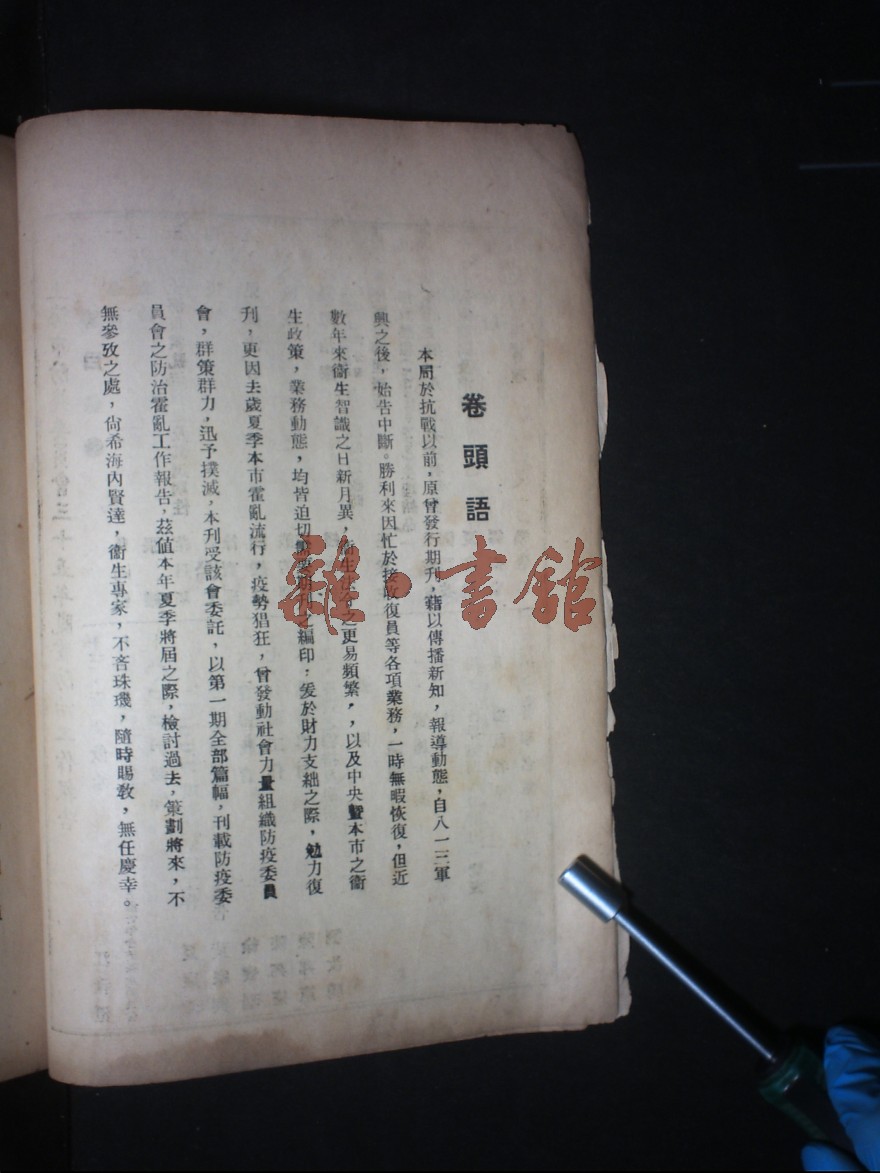 卷頭語
本局於抗戰以前，原曾發行期刊，藉以傳播新知，報導動態，自八一三軍
興之後，始告中斷。勝利來因忙於接收復員等各項業務，一時無暇恢復，但近
數年來衞生智識之日新月異，衞生法令之更易頻繁，，以及中央曁本市之衞
生政策，業務動態，均皆迫切需要期刊之編印；爰於財力支絀之際，勉力復
刊，更因去歲夏季本市霍亂流行，疫勢猖狂，曾發動社會力量組織防疫委員
會，群策群力，迅予撲滅，本刊受該會委託，以第一期全部篇幅，刊載防疫委
員會之防治霍亂工作報告，茲值本年夏季將屆之際，檢討過去，策劃將來，不
無參攷之處，尙希海內賢達，衞生專家，不吝珠璣，隨時賜敎，無任慶幸。
雜·書館